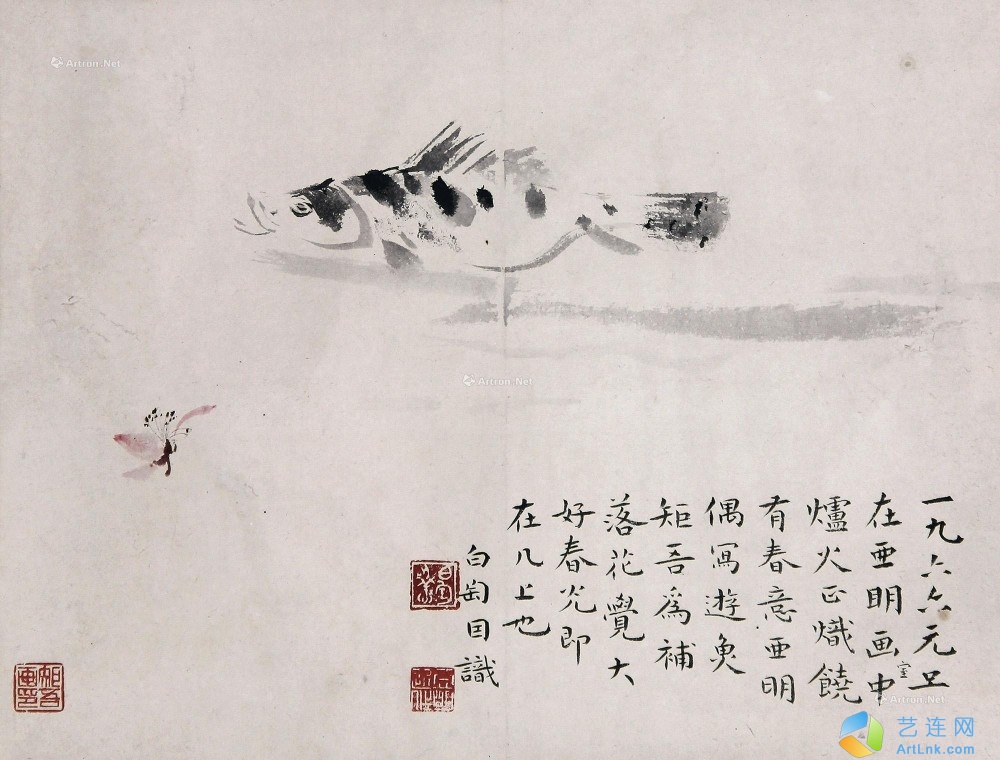 一九六六元旦
在亜明画室中
爐火正熾饒
有春意亜明
偶寫遊魚
矩吾為補
落花覺大
好春光即
在几上也
白匋囙識
Artron.Net
Artron.Net
Artron.Net
艺连网
ArtLnk.com